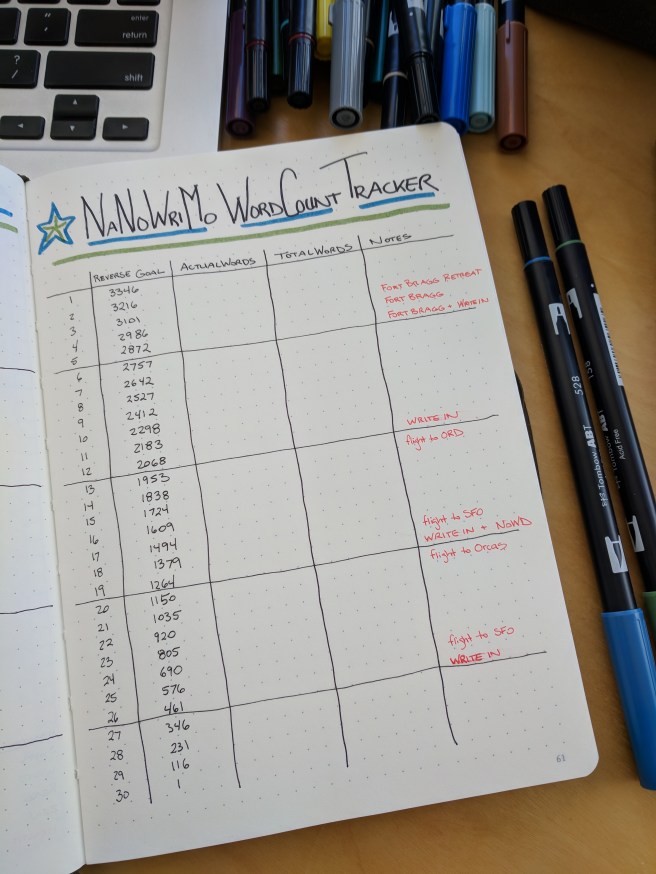 enter
return
shift
?
/
"
'
NaNoWriMo WordCount Tracker
Reverse Goal Actual Words Total Words Notes
1 3346
2 3216
3 3101 Fort Bragg Retreat
4 2986 Fort Bragg
5 2872 Fort Bragg + Write in
6 2757
7 2642
8 2527
9 2412
10 2298
11 2183
12 2068 Write in
13 1953 flight to ORD
14 1838
15 1724
16 1609
17 1494
18 1379 flight to SFO
19 1264 Write in + NoWD
20 1150 flight to Orcas
21 1035
22 920
23 805
24 690
25 576 flight to SFO
26 461 Write in
27 346
28 231
29 116
30 1
61
528
Tombow ABT
Acid Free